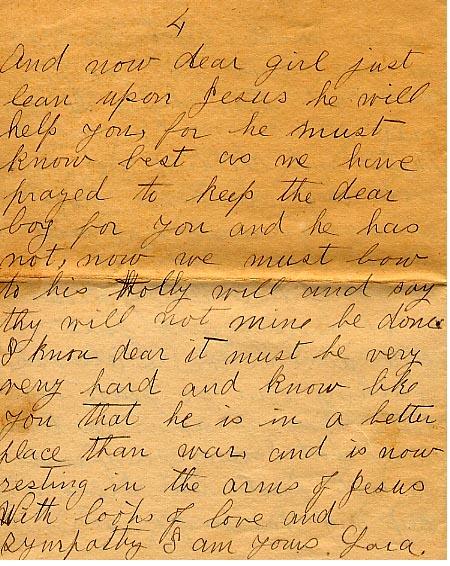 4
And now dear girl just
lean upon Jesus he will
help you, for he must
know best as we have
prayed to keep the dear
boy for you and he has
not, now we must bow
to his Holly will and say
thy will not mine be done.
I know dear it must be very
very hard and know like
you that he is in a better
place than war, and is now
resting in the arms of Jesus
With loops of love and
Sympathy I am yours.